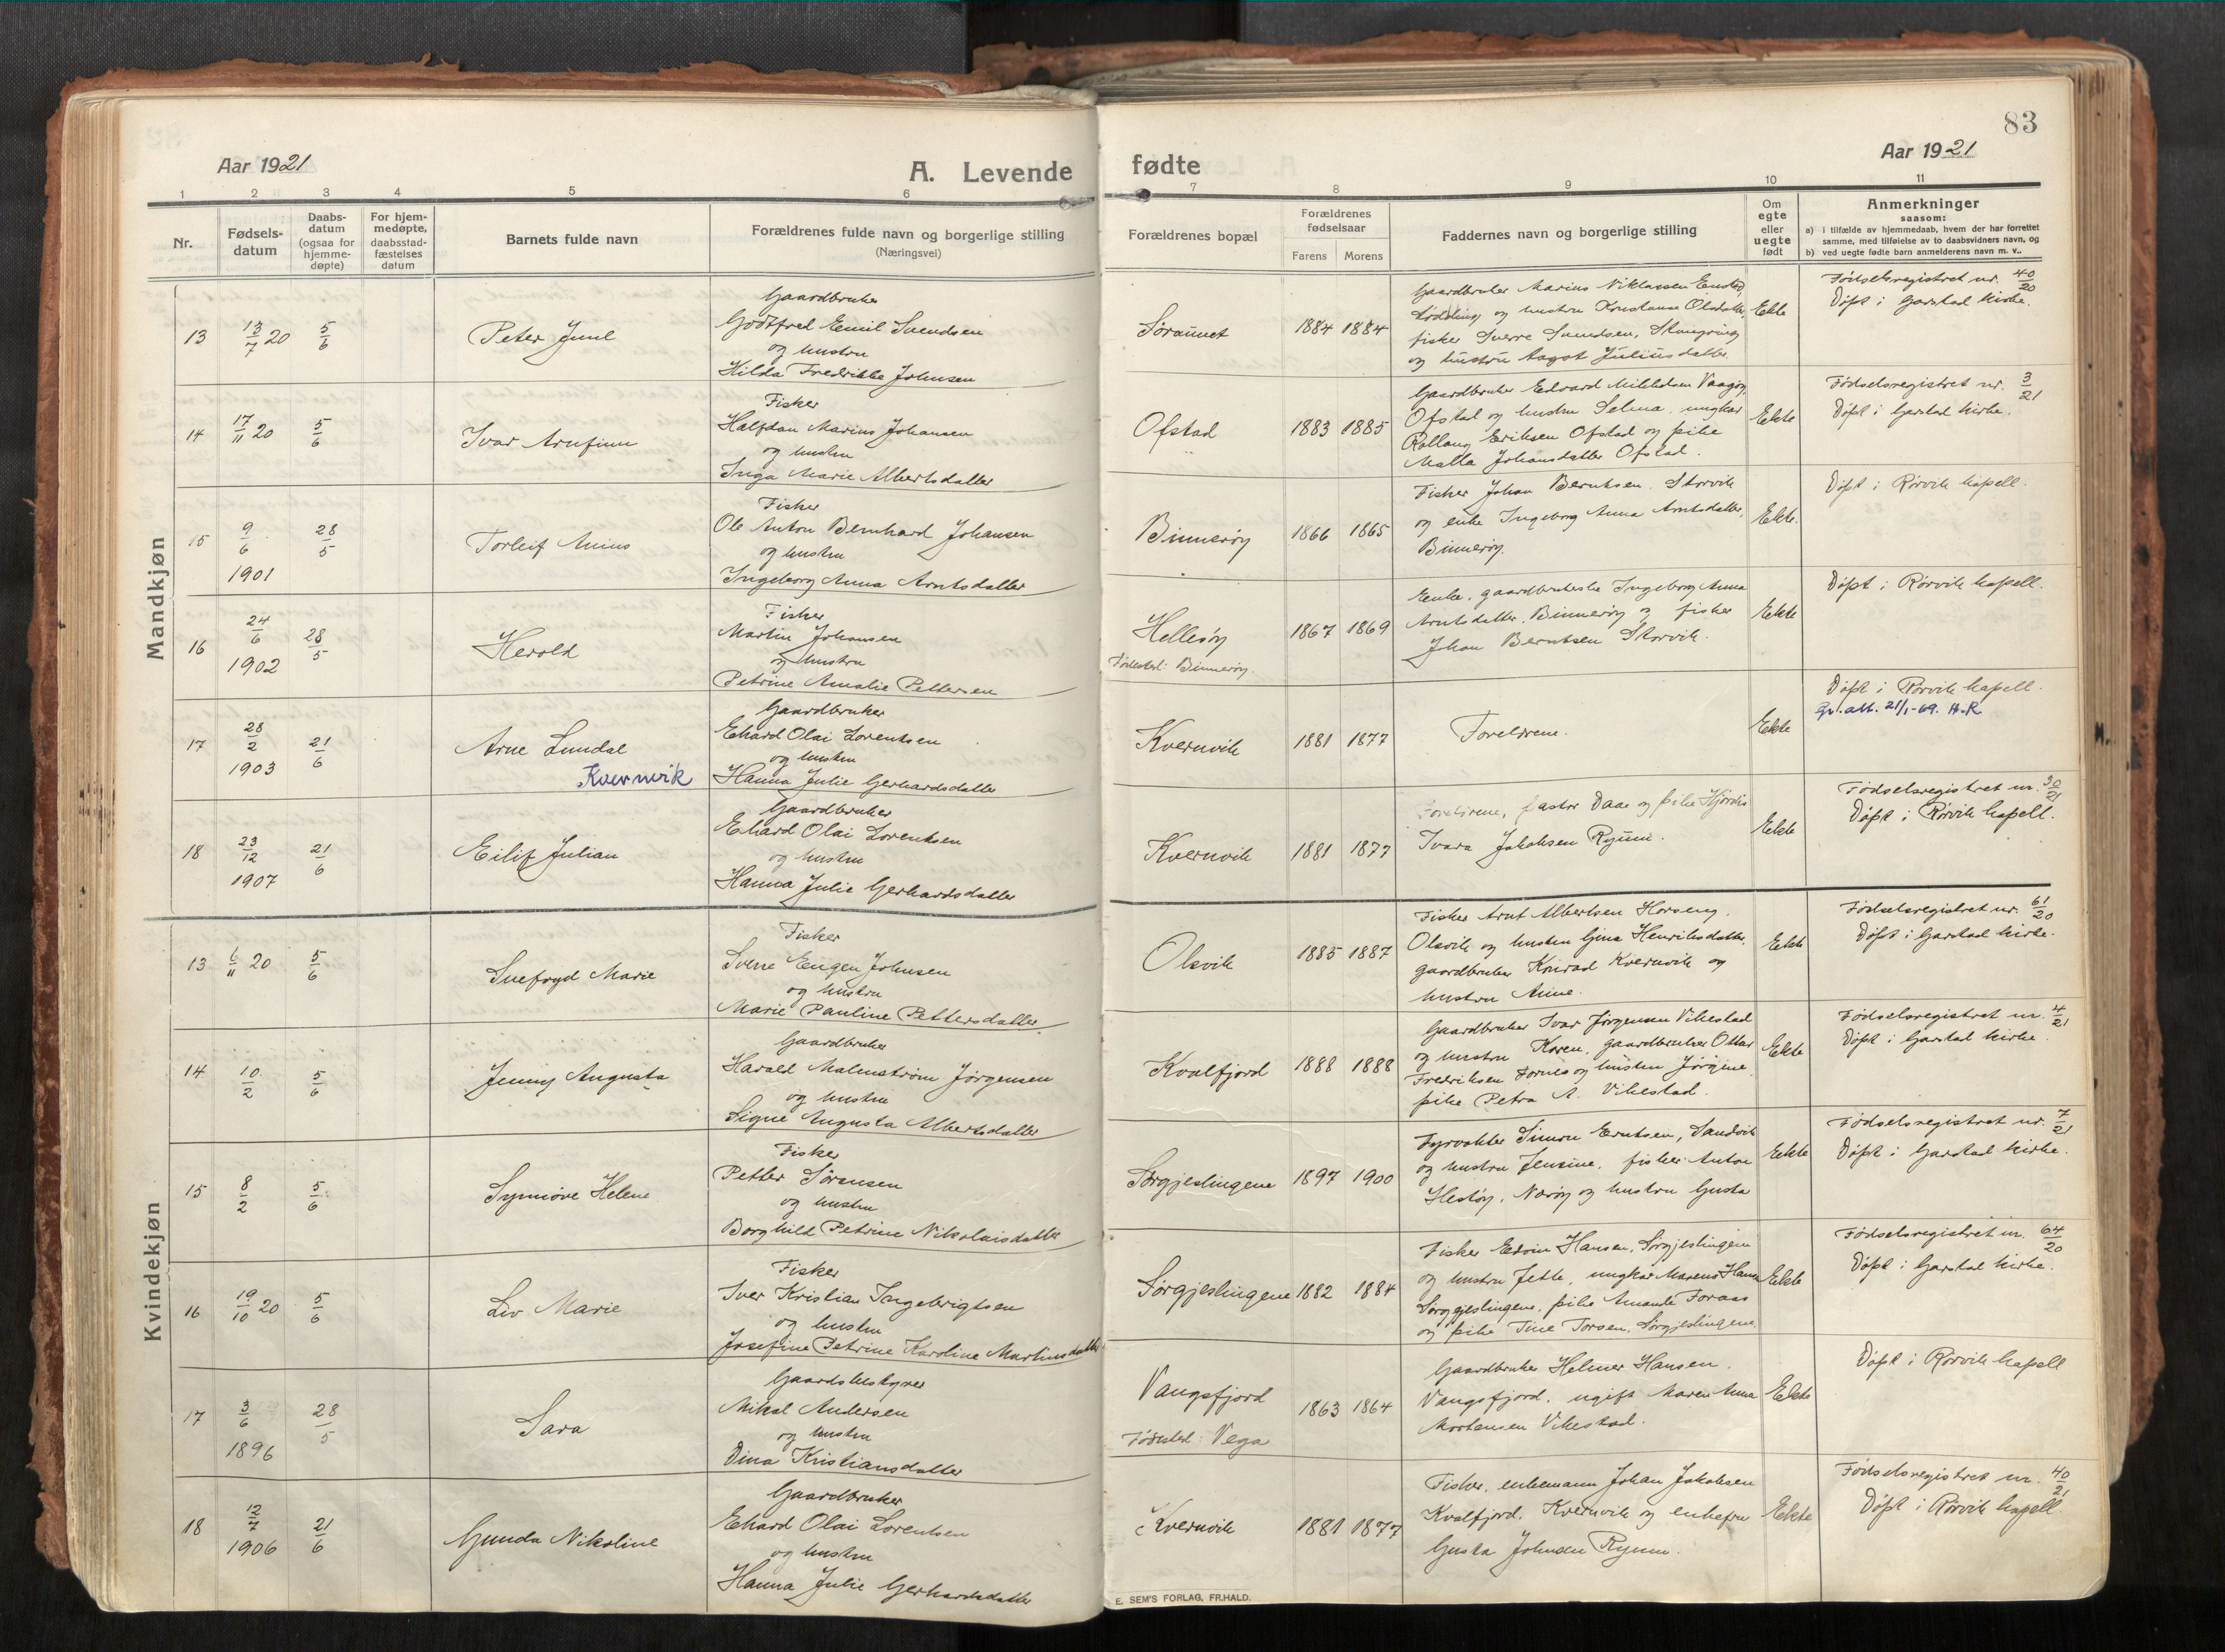 83
Aar 1921
A. Levende
fødte
Aar 1921
1 2 3 4 5 6
7 8 9 10 11
Nr.
Fødsels-
datum
Daabs-
datum
(ogsaa for
hjemme-
døpte)
For hjem-
medøpte,
daabsstad-
fæstelses
datum
Barnets fulde navn
Forældrenes fulde navn og borgerlige stilling
(Næringsvei)
Forældrenes bopæl
Forældrenes
fødselsaar
Farens
Morens
Faddernes navn og borgerlige stilling
Om
egte
eller
uegte
født
Anmerkninger
saasom:
a) i tilfælde av hjemmedaab, hvem der har forrettet
samme, med tilføielse av to daabsvidners navn, og
b) ved uegte fødte barn anmelderens navn m. v..
Mandkjøn
13
13/7 20
5/6
Peter Juul
Gaardbruker
Godtfred Emil Svendsen
og hustru
Hilda Fredrikke Johnsen
Søraunet
1884 1884
Gaardbruker Marius Niklassen
og hustru Konstanse Olsdatter,
fisker Sverre Svendsen,
og hustru Aagot Juliusdatter.
Ekte
Fødselsregistret nr. 40/20
Døpt i Garstad kirke.
14
17/11 20
5/6
Ivar Arnfinn
Fisker
Halfdan Marius Johansen
og hustru
Inga Marie Albertsdatter
Ofstad
1883 1885
Gaardbruker Edvard Mikkelsen Vaagø,
Ofstad og hustru Selma, ungkar
Eriksen Ofstad og pike
Malla Johansdatter Ofstad.
Ekte
Fødselsregistret nr. 3/21
Døpt i Garstad kirke.
15
9/6
1901
28/5
Torleif Anius
Fisker
Ole Anton Bernhard Johansen
og hustru
Ingeborg Anna Arntsdatter
Binnerøy
1866 1865
Fisker Johan Berntsen, Storvik
og enke Ingeborg Anna Arntsdatter,
Binnerøy.
Ekte.
Døpt i Rørvik kapell.
16
24/6
1902
28/5
Herold
Fisker
Martin Johansen
og hustru
Petrine Amalie Pettersen
Hellesøy
Fødested: Binnerøy.
1867 1869
Enke, gaardbrukerske Ingeborg Anna
Arntsdatter, Binnerøy og fisker
Johan Berntsen Storvik.
Ekte
Døpt i Rørvik kapell.
17
28/2
1903
21/6
Arne Lundal
Kvernvik
Gaardbruker
Ehard Olai Lorentsen
og hustru
Hanna Julie Gerhardsdatter
Kvernvik
1881 1877
Foreldrene.
Ekte
Døpt i Rørvik kapell.
21/1-69. H.R.
18
23/12
1907
21/6
Eilif Julian
Gaardbruker
Ehard Olai Lorentsen
og hustru
Hanna Julie Gerhardsdatter
Kvernvik
1881 1877
Foreldrene, pastor Daae og pike Hjørdis
Ivara Jakobsen Ryum.
Ekte
Fødselsregistret nr. 30/21
Døpt i Rørvik kapell.
Kvindekjøn
13
6/11 20
5/6
Snefryd Marie
Fisker
Sverre Eugen Johnsen
og hustru
Marie Pauline Pettersdatter
Olsvik
1885 1887
Fisker Arnt Albertsen Horseng,
Olsvik og hustru Gina Henriksdatter,
gaardbruker Konrad Kvernvik og
hustru Anne.
Ekte
Fødselsregistret nr. 61/20
Døpt i Garstad kirke.
14
10/2
5/6
Jenny Augusta
Gaardbruker
Harald Malmstrøm Jørgensen
og hustru
Signe Augusta Albertsdatter
Kvalfjord
1888 1888
Gaardbruker Ivar Jørgensen Vikestad
og hustru Karen, gaardbruker Ottar
Fredriksen Hornes og hustru Jørgine,
pike Petra A. Vikestad.
Ekte
Fødselsregistret nr. 4/21
Døpt i Garstad kirke.
15
8/2
5/6
Synnøve Helene
Fisker
Petter Sørensen
og hustru
Borghild Petrine Nikolaisdatter
Sørgjeslingene
1897 1900
Fyrvokter Simon Erntsen, Sandvik
og hustru Jensine, fisker Anton
Hestøy, Nærøy og hustru Gusta
Ekte
Fødselsregistret nr. 7/21
Døpt i Garstad kirke.
16
19/10 20
5/6
Liv Marie
Fisker
Iver Kristian Ingebrigtsen
og hustru
Josefine Petrine Karoline Martinusdatter
Sørgjeslingene
1882 1884
Fisker Edvin Hansen, Sørgjeslingene
og hustru Jette, ungkar Marenus Hansen
Sørgjeslingene, pike Amanda Foraas
og pike Tine Torsen, Sørgjeslingene
Ekte
Fødselsregistret nr. 64/20
Døpt i Garstad kirke.
17
3/6
1896
28/5
Sara
Gaardsbestyrer
Mikal Andersen
og hustru
Dina Kristiansdatter
Vangsfjord
Fødested: Vega
1863 1864
Gaardbruker Helmer Hansen,
Vangsfjord, ugift Maren Anna
Mortensen Vikestad.
Ekte
Døpt i Rørvik kapell
18
12/7
1906
21/6
Gunda Nikoline
Gaardbruker
Ehard Olai Lorentsen
og hustru
Hanna Julie Gerhardsdatter
Kvernvik
1881 1877
Fisker, enkemann Johan Jakobsen
Kvalfjord, Kvernvik og enkefru
Gusta Johnsen Ryum.
Ekte
Fødselsregistret nr. 40/21
Døpt i Rørvik kapell
E. SEM'S FORLAG, FR.HALD.